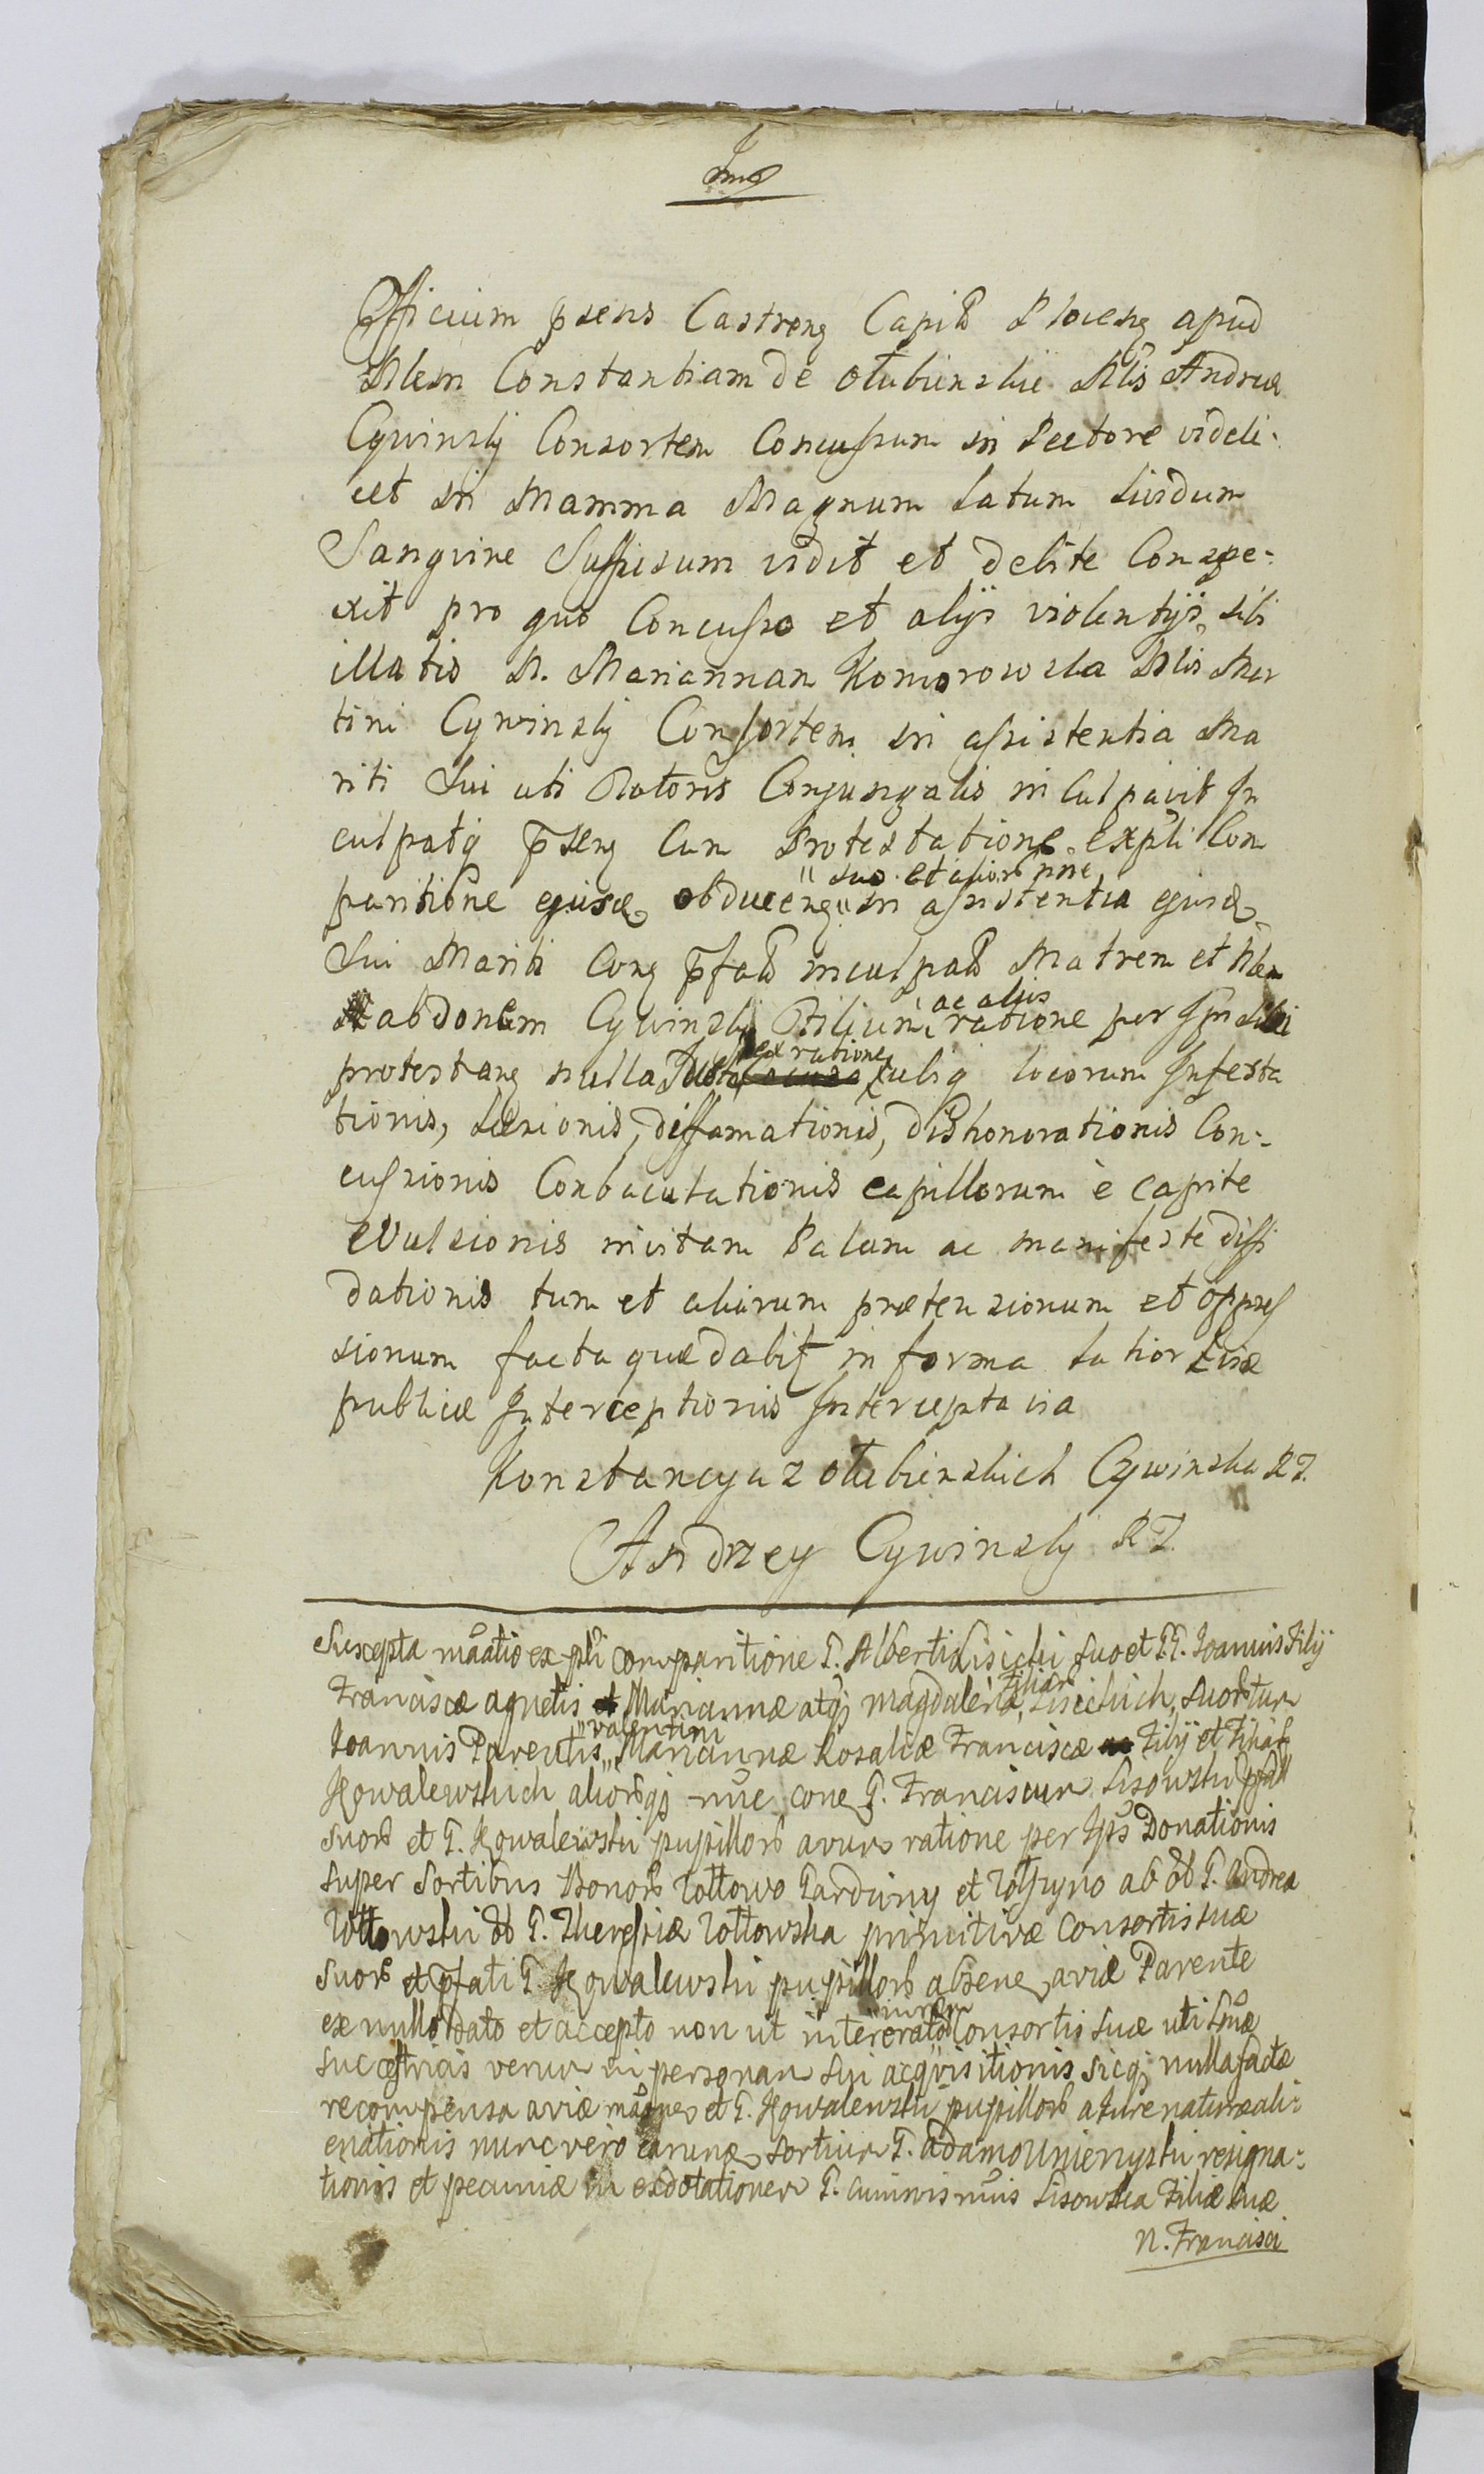 Officium psens Castreng Capit Ploceng apud
Nlem Constantiam de Otubienskie Nlis Andreæ
Cywinsky Consortem Concussum in Pectore videli:
cet in Mamma Magnum latum lividum
Sangvine Suffusum vidit et debite Conspe:
xit pro quo Concusso et alys violentys sibi
illatis N. Mariannam Komorowska Nlis Mar
tini Cywinsky Consortem in assistentia Ma
riti Sui uti Tutoris Conjungalis inculpavit In
culpatq pseng Cum Protestatione expli Com
paritione ejusd obduceng " suo et alior nne " in assistentia ejusd
Sui Mariti Cong pfat inculpat Matrem et Nlem
abdonem Cywinsky Filium, ac aliis ratione per Ipm Sibi
protestang nulla Justa ex ratione cusq locorum Infesta
tionis, Læsionis, diffamationis, dishonorationis Con:
cussionis Conbaculationis capillorum è capite
evulsionis invitam Palam ac manifeste diffi
dationis tum et aliarum prætensionum et oppres
sionum facta quæ dabit in forma latior
publicæ Interceptionis Intercepta via
Konstancya z Otubienskich Cywinska
Andrzey Cywinsky
Suscepta ex pli comparitione G. Alberti Lisicki suo et G.G. Joannis Filij
Franciscæ agnetis Mariannæ atq magdalena, Filiar Lisickich, suor tum
Joannis Parentis " valentini " Mariannæ Rosaliæ Franciscæ Filij et Filiar
Kowalewskich aliorqs nne cone G. Franciscum Lisowski
suor et G. Kowalewski pupillor avum ratione per Ips Donationis
super Sortibus Bonor Zottowo Parduny et ab G. Andrea
Zottowski G. Theresiæ Zottowska primitivæ consortis suæ
suor et pfati G. Kowalewski pupillor absene aviæ Parente
ex nullo dato et accepto non ut Consortis suæ uti
in personam sui acqvisitionis sicq nulla facta
recompensa aviæ et G. Kowalewski pupillor a Jure naturæ ali:
enationis nunc vero sortium G. adamo resigna:
tionis et pecuniæ in exdotationem G. Lisowska Filiæ suæ
N. Francisci